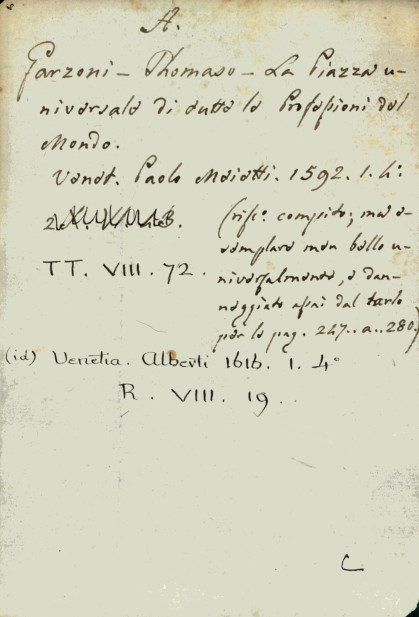 A.
Garzoni - Thomaso - La Piazza u-
niversale di tutte le Professioni del
Mondo.
Venet. Paolo Meietti. 1592. 1. 4.°
(risc.° compito; ma e-
semplare men bello u-
TT. VIII. 72.
niversalmente, e dan-
neggiato assai dal tarlo
per le pag. 247.. a.. 280.)
(id) Venetia. Alberti 1616. 1. 4°
R. VIII. 19..
C